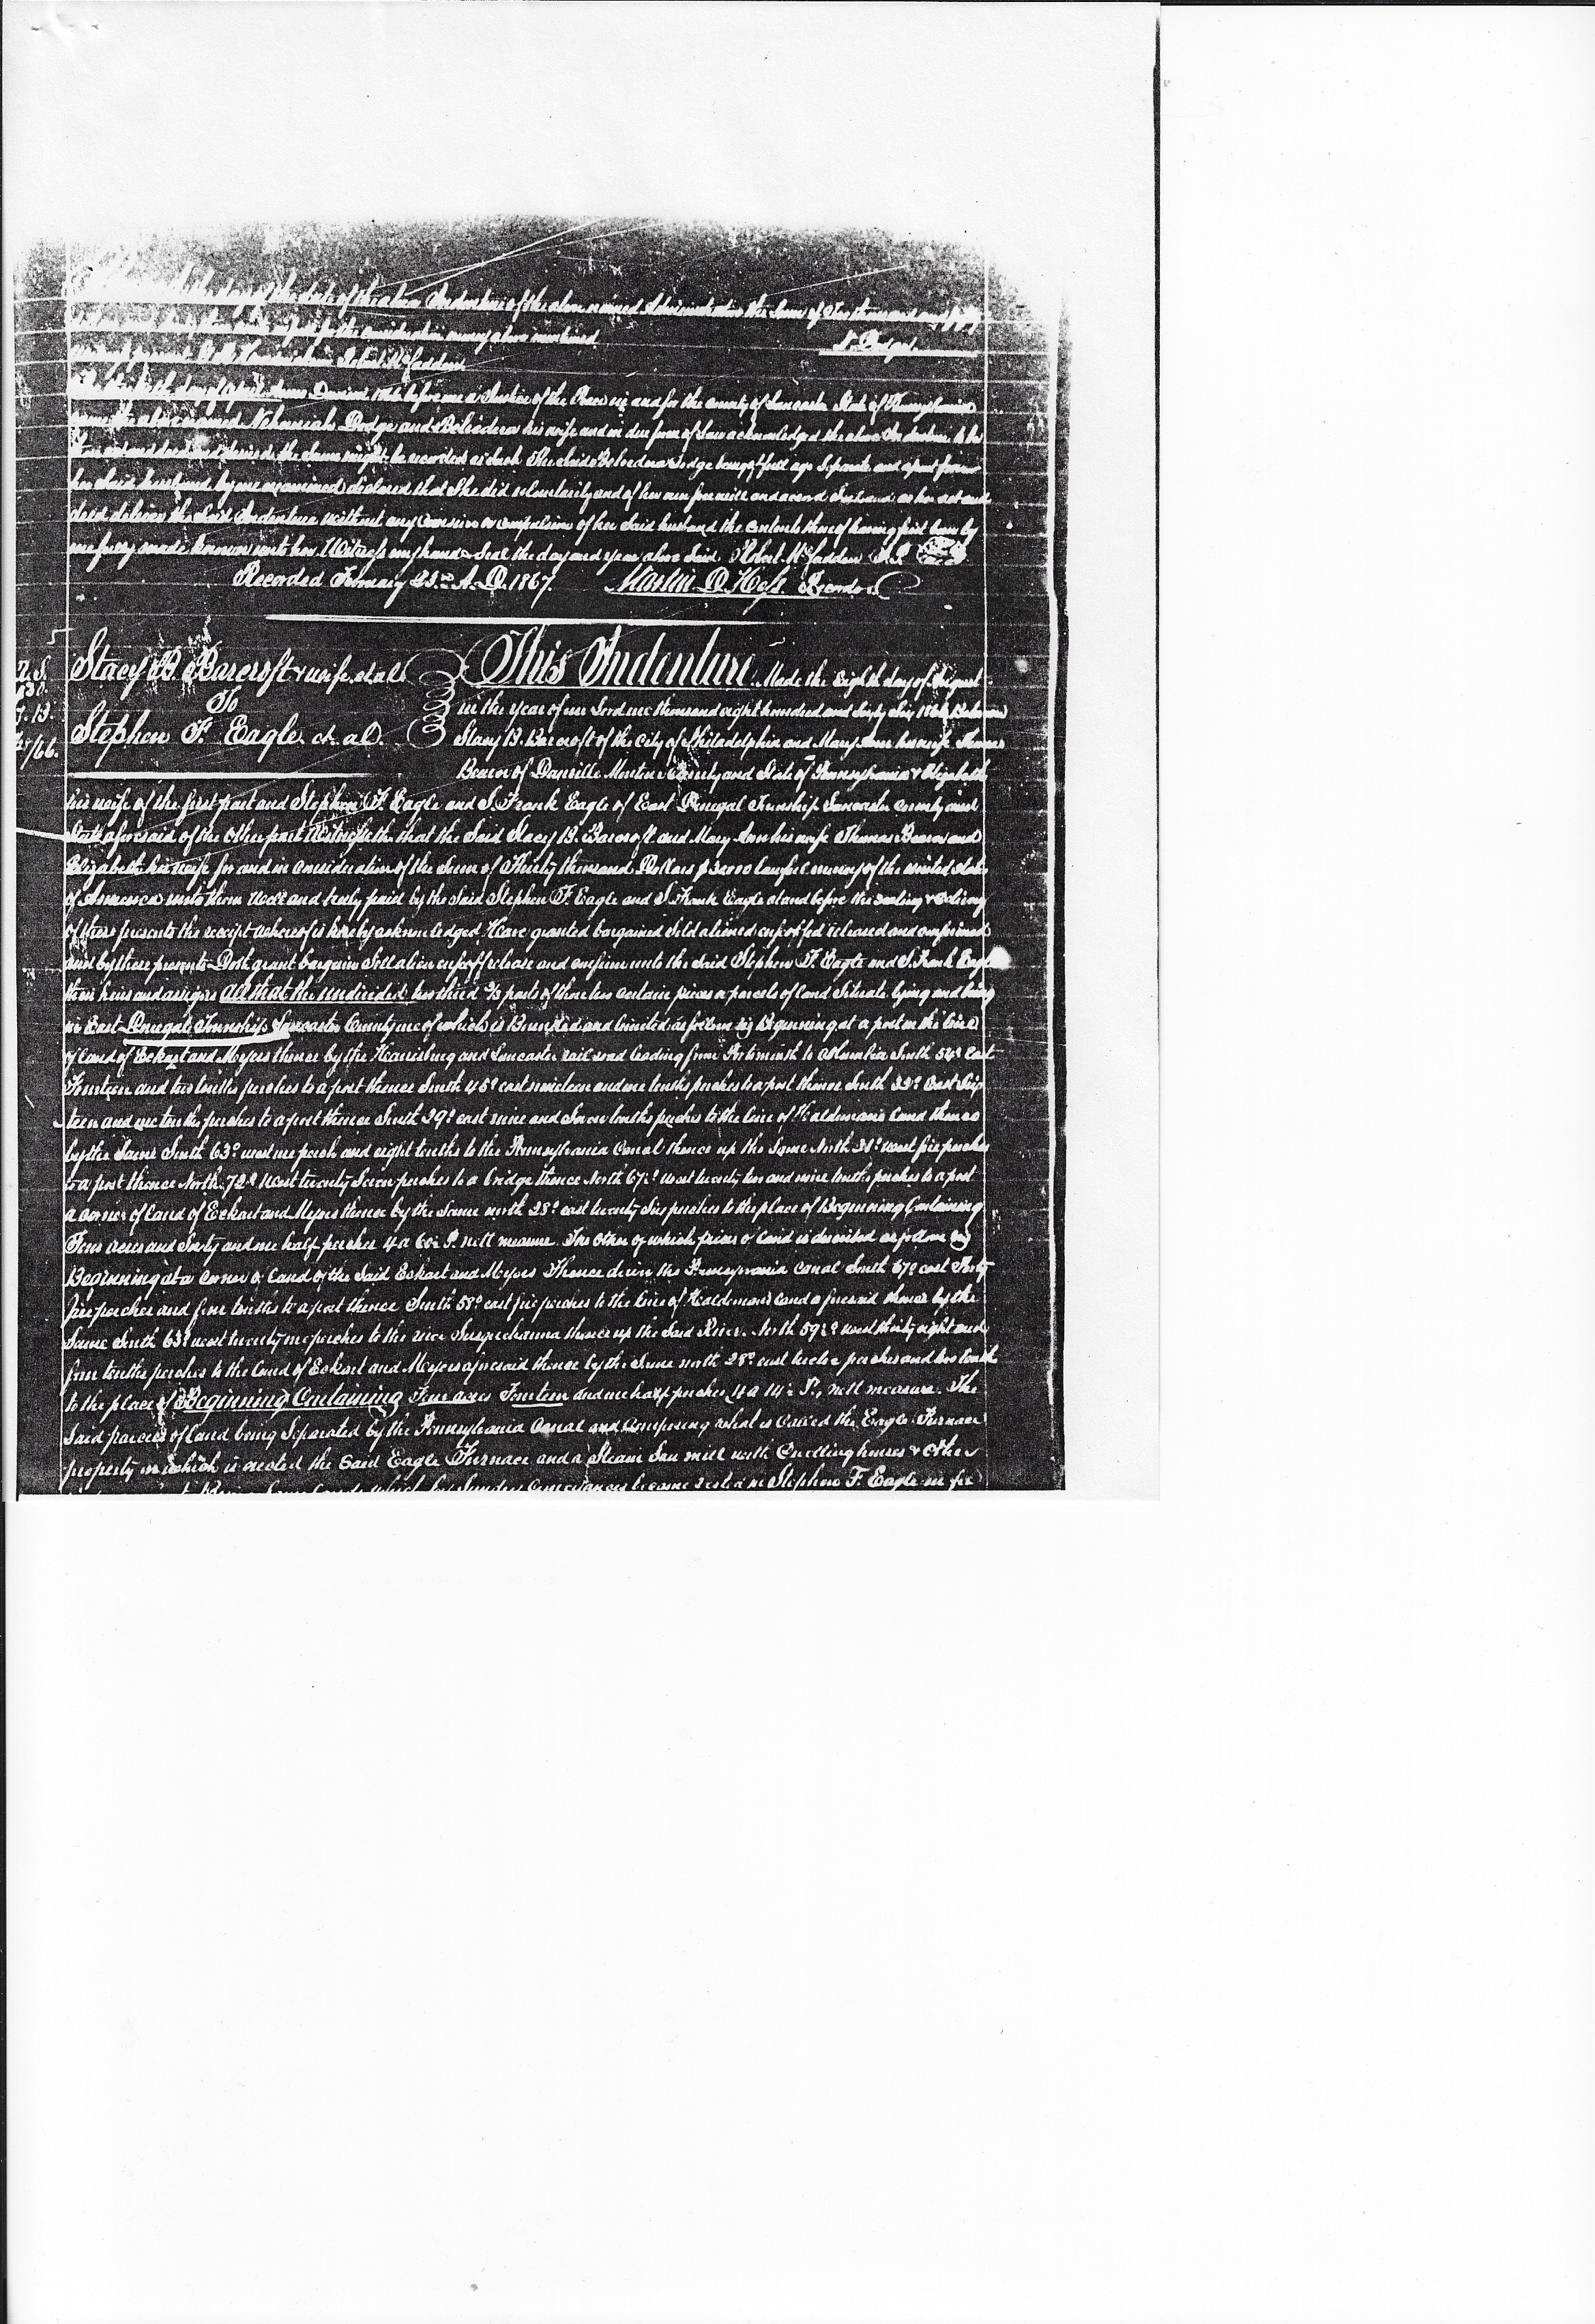 day of the date of the above Indenture of the above named the Sum of
consideration money above mentioned
N. Dodge
present Robert McFadden
day of April Anno Domini before me a Justice of the Peace in and for the county of Lancaster State of Pennsylvania
the above named Nehemiah Dodge and Belvedera his wife and in due form of Law acknowledged the above Indenture to be
act and deed and desired the same might be recorded as Such The Said Belvedera Dodge being of full age Separate and apart from
her Said husband by me examined declared that She did voluntarily and of her own free will and accord Seal and as her act and
deed deliver the Said Indenture without any Coersion or compulsion of her Said husband the contents thereof having first been by
me fully made known unto her Witness my hand & Seal the day and year above Said Robert McFadden J.P. Seal
Recorded February 23rd A.D. 1867. Martin D. Hess Recorder
Stacy B. Barcroft & wife et al
To
Stephen F. Eagle et al
U.S.
/66.
This Indenture Made the Eighth day of August
in the year of our Lord one thousand eight hundred and Sixty Six 1866 Between
Stacy B. Barcroft of the City of Philadelphia and Mary Ann his wife Thomas
Beaver of Danville Montour County and State of Pennsylvania & Elizabeth
his wife of the first part and Stephen F. Eagle and S. Frank Eagle of East Donegal Township Lancaster County and
State aforesaid of the other part Witnesseth that the Said Stacy B. Barcroft and Mary Ann his wife Thomas Beaver and
Elizabeth his wife for and in consideration of the Sum of Thirty thousand Dollars $30000 lawful money of the united States
of America unto them well and truly paid by the Said Stephen F. Eagle and S. Frank Eagle at and before the sealing & delivery
of these presents the receipt whereof is hereby acknowledged Have granted bargained Sold aliened enfeoffed released and confirmed
and by these presents Doth grant bargain Sell alien enfeoff release and confirm unto the Said Stephen F. Eagle and S. Frank Eagle
their heirs and assigns all that the undivided two third 2/3 parts of those two certain pieces or parcels of land Situate lying and being
in East Donegal Township Lancaster County one of which is Bounded and limited as follows viz Beginning at a post in the line
of land of Eckert and Myers thence by the Harrisburg and Lancaster rail road leading from Portsmouth to Columbia South 54° East
Fourteen and two tenths perches to a post thence South 45° east nineteen and one tenths perches to a post thence South 33° East Six
teen and one tenths perches to a post thence South 29° east nine and Seven tenths perches to the line of Haldemans land thence
by the Same South 63° west one perch and eight tenths to the Pennsylvania Canal thence up the Same North west five perches
to a post thence North 72° West twenty Seven perches to a bridge thence North 67½° west twenty two and nine tenths perches to a post
a corner of land of Eckert and Myers thence by the Same north 28° east twenty Six perches to the place of Beginning Containing
Four acres and Sixty and one half perches 4 a 60½ P. nett measure. The other of which pieces of land is described as follows viz
Beginning at a corner of land of the Said Eckert and Myers Thence down the Pennsylvania canal South 67° east Forty
five perches and four tenths to a post thence South 58° east five perches to the line of Haldemans land aforesaid thence by the
Same South 63° west twenty one perches to the river Susquehanna thence up the Said River North 59½° west thirty eight and
four tenths perches to the land of Eckert and Meyers aforesaid thence by the Same north 28° east twelve perches and two tenths
to the place of Beginning Containing Four acres Fourteen and one half perches 4 a 14½ P. nett measure. The
Said parcels of land being Separated by the Pennsylvania Canal and composing what is called the Eagle Furnace
property on which is erected the Said Eagle Furnace and a Steam Saw mill with Dwelling houses & other
which by Sundry Conveyances became vested in Stephen F. Eagle in fee